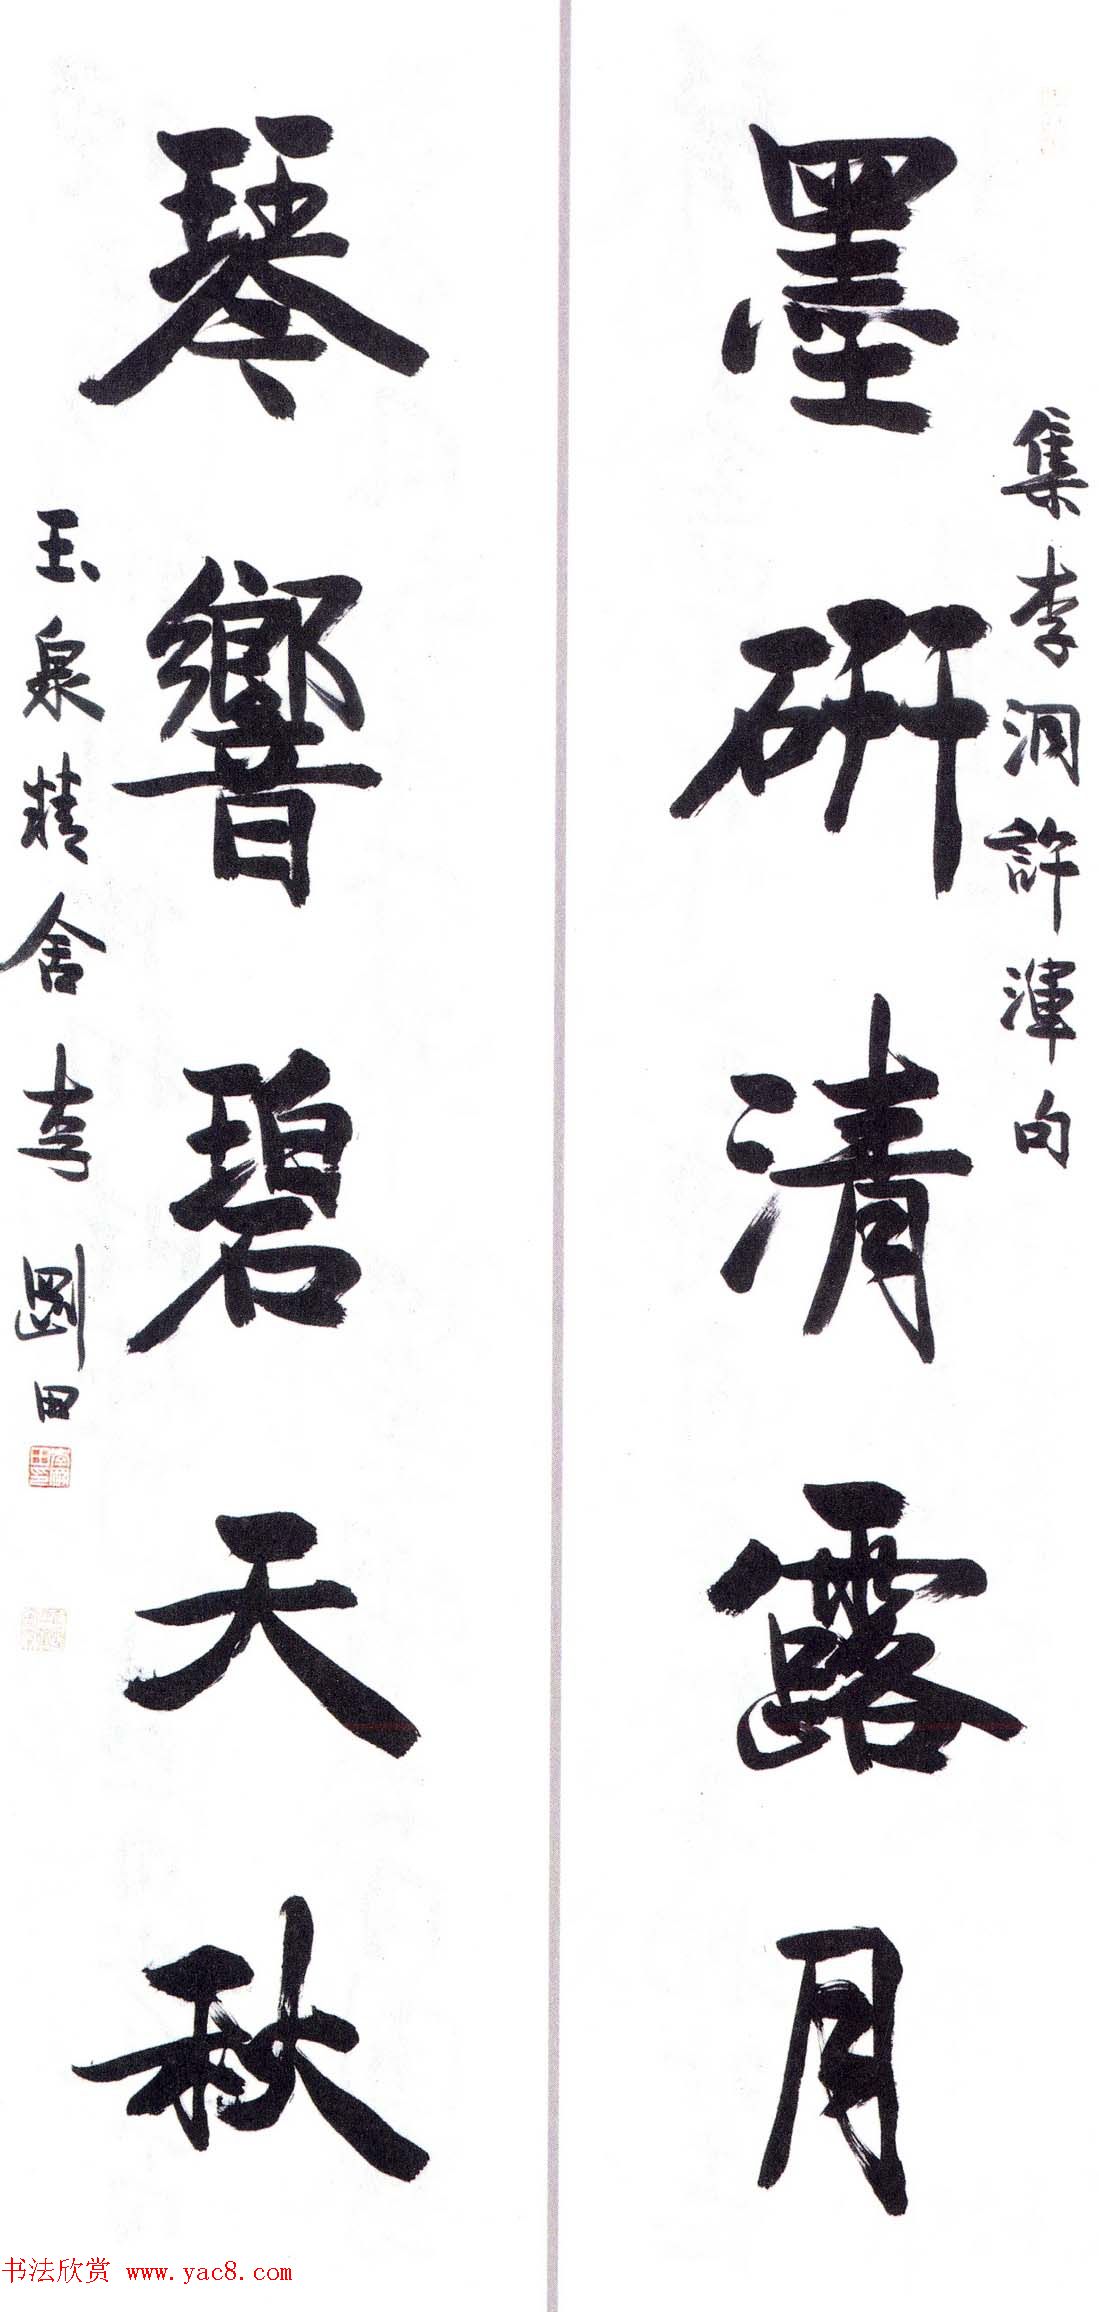 集李洞許渾句
墨研清露月
琴響碧天秋
玉泉精舍李剛田
书法欣赏 www.yac8.com